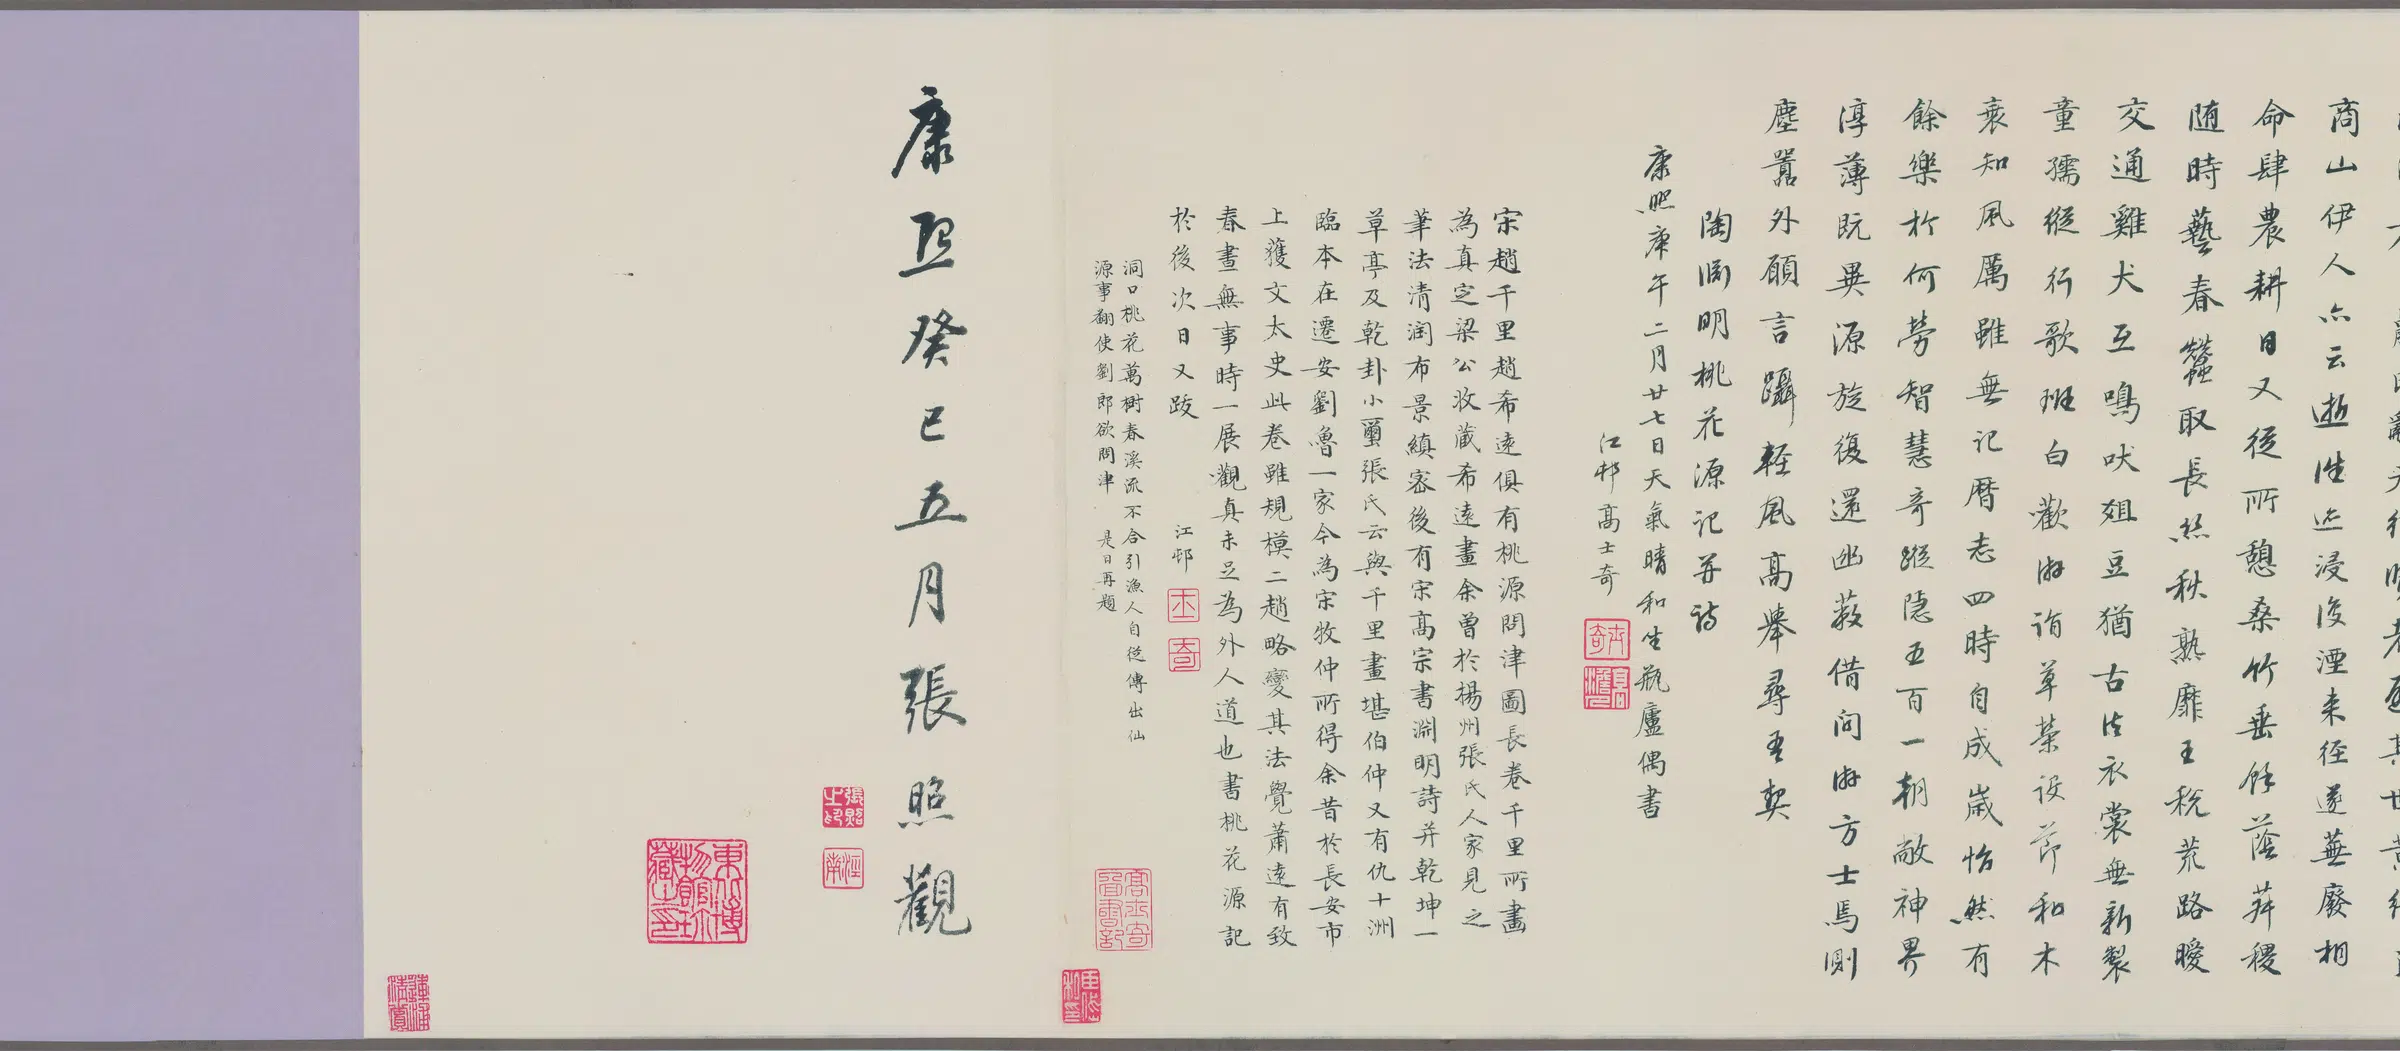 商山伊人亦云逝往迹浸復湮来径遂蕪廢相
命肆農耕日又從所憩桑竹垂餘蔭菽稷
随時藝春蠶取長絲秋熟靡王稅荒路曖
交通雞犬互鳴吠俎豆猶古法衣裳無新製
童孺縱行歌班白歡游詣草榮设节和木
衰知風厲雖無记曆志四時自成嵗怡然有
餘樂於何勞智慧奇蹤隱五百一朝敞神界
淳薄既異源旋復還幽蔽借问游方士焉測
塵囂外願言躡輕風高舉尋吾契
陶渊明桃花源记并诗
康熙庚午二月廿七日天氣晴和坐瓶廬偶書
江邨高士奇
宋趙千里趙希遠俱有桃源問津圖長卷千里所畫
為真定梁公收藏希遠畫余曾於揚州張氏人家見之
筆法清潤布景縝密後有宋高宗書淵明詩并乾坤一
草亭及乾卦小璽張氏云與千里畫堪伯仲又有仇十洲
臨本在遷安劉魯一家今為宋牧仲所得余昔於長安市
上獲文太史此卷雖規模二趙略變其法覺蕭遠有致
春晝無事時一展觀真未足為外人道也書桃花源記
於後次日又跋
江邨
洞口桃花萬樹春溪流不合引漁人自從傳出仙
源事翻使劉郎欲問津 是日再題
康熙癸巳五月張照觀
張照之印